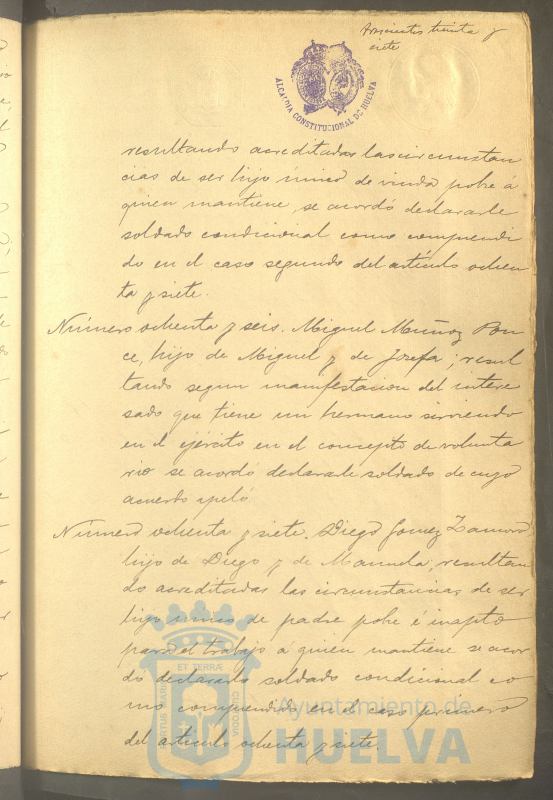 trescientos treinta y
siete
ALCALDIA CONSTITUCIONAL DE HUELVA
resultando acreditadas las circunstan
cias de ser hijo único de viuda pobre á
quien mantiene, se acordó declararle
soldado condicional como comprendi
do en el caso segundo del artículo ochen
ta y siete.
Número ochenta y seis. Miguel Muñoz Pon
ce, hijo de Miguel y de Josefa; resul
tando segun manifestacion del intere
sado que tiene un hermano sirviendo
en el ejército en el concepto de volunta
rio se acordó declararle soldado de cuyo
acuerdo apeló
Número ochenta y siete. Diego Gomez Zamora
hijo de Diego y de Manuela, resultan
do acreditadas las circunstancias de ser
hijo único de padre pobre é inapto
para el trabajo a quien mantiene se acor
dó declararle soldado condicional co
mo comprendido en el caso primero
del artículo ochenta y siete.
PORTUS MARIS ET TERRÆ CUSTODIA
Ayuntamiento de
HUELVA